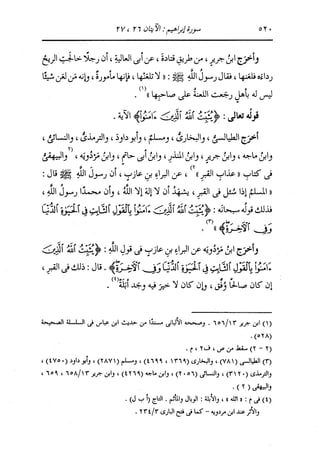 ٥٢٠ سورة إبراهيم : الآيتان ٢٦ ، ٢٧
وأخرَج ابنُ جريرٍ ، من طريقِ قتادةَ ، عن أبى العاليةِ ، أن رجلًا خالجَت الريحُ
رداءَه فلعَنها ، فقال رسولُ اللهِ ﷺ : « لا تلعَنْها ، فإنها مأمورةٌ ، وإنه مَن لعَن شيئًا
ليس له بأهلٍ رجَعت اللعنةُ على صاحبِها »(١) .
قولُه تعالى : ﴿ يُثَبِّتُ اللَّهُ الَّذِينَ ءَامَنُوا ﴾ الآية .
أخرَج الطيالسىُّ ، والبخارىُّ ، ومسلمٌ ، وأبو داودَ ، والترمذىُّ ، والنسائىُّ ،
وابنُ ماجه ، وابنُ جريرٍ ، وابنُ المنذرِ ، وابنُ أبى حاتمٍ ، وابنُ مَرْدُويَه ، (٢والبيهقىُّ
فى كتابِ « عذابِ القبرِ »٢) ، عن البراءِ بنِ عازبٍ ، أن رسولَ اللهِ ﷺ قال :
« المسلمُ إذا سُئل فى القبرِ ، يشهَدُ أن لا إلهَ إلا اللهُ ، وأن محمدًا رسولُ اللهِ ،
فذلك قولُه سبحانَه : ﴿ يُثَبِّتُ اللَّهُ الَّذِينَ ءَامَنُوا بِالْقَوْلِ الثَّابِتِ فِي الْحَيَوٰةِ الدُّنْيَا
وَفِي الْآخِرَةِ ﴾ »(٣) .
وأخرَج ابنُ مَرْدُويَه عن البراءِ بنِ عازبٍ فى قولِ اللهِ : ﴿ يُثَبِّتُ اللَّهُ الَّذِينَ
ءَامَنُوا بِالْقَوْلِ الثَّابِتِ فِي الْحَيَوٰةِ الدُّنْيَا وَفِي الْآخِرَةِ ﴾ . قال : ذلك فى القبرِ ،
إن كان صالحًا وُفِّق ، وإن كان لا خيرَ فيه وجَد أَبَلَةً(٤) .
(١) ابن جرير ١٣/ ٦٥٦ . وصححه الألبانى مسندًا من حديث ابن عباس فى السلسلة الصحيحة
(٥٢٨) .
(٢ - ٢) سقط من ص ، ف٢ ، م .
(٣) الطيالسى (٧٨١) ، والبخارى (١٣٦٩ ، ٤٦٩٩) ، ومسلم (٢٨٧١) ، وأبو داود (٤٧٥٠) ،
والترمذى (٣١٢٠) ، والنسائى (٢٠٥٦) ، وابن ماجه (٤٢٦٩) ، وابن جرير ١٣/ ٦٥٨ ، ٦٥٩ ،
والبيهقى (٢) .
(٤) فى م : « الله » ، والأبلة : الوبال والمأثم . التاج (أ ب ل) .
والأثر عند ابن مردويه - كما فى فتح البارى ٣/ ٢٣٤ .